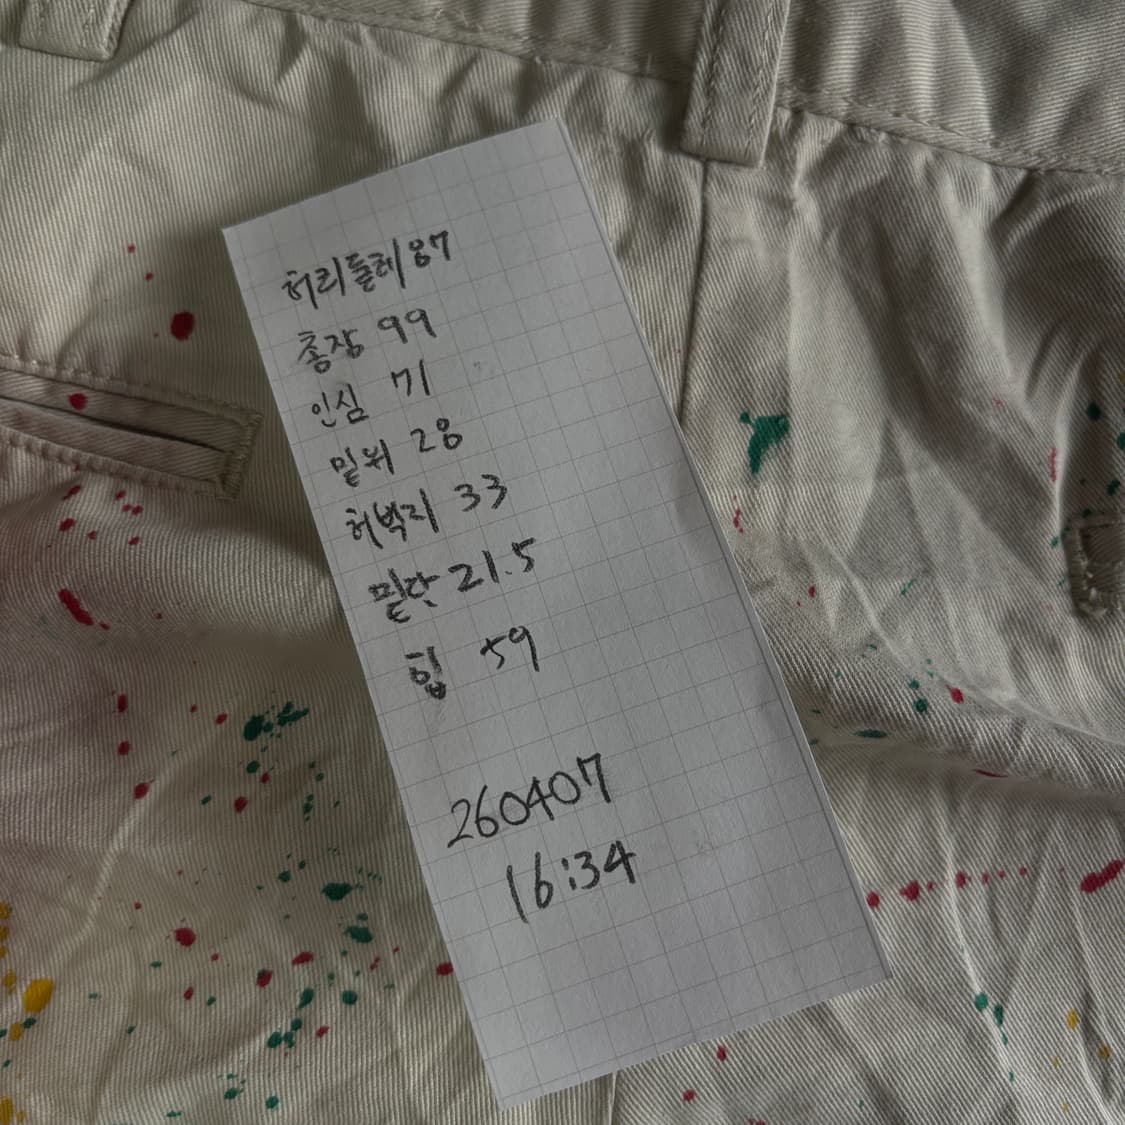 허리둘레 87
총장 99
인심 71
밑위 28
허벅지 33
밑단 21.5
힙 59
260407
16:34